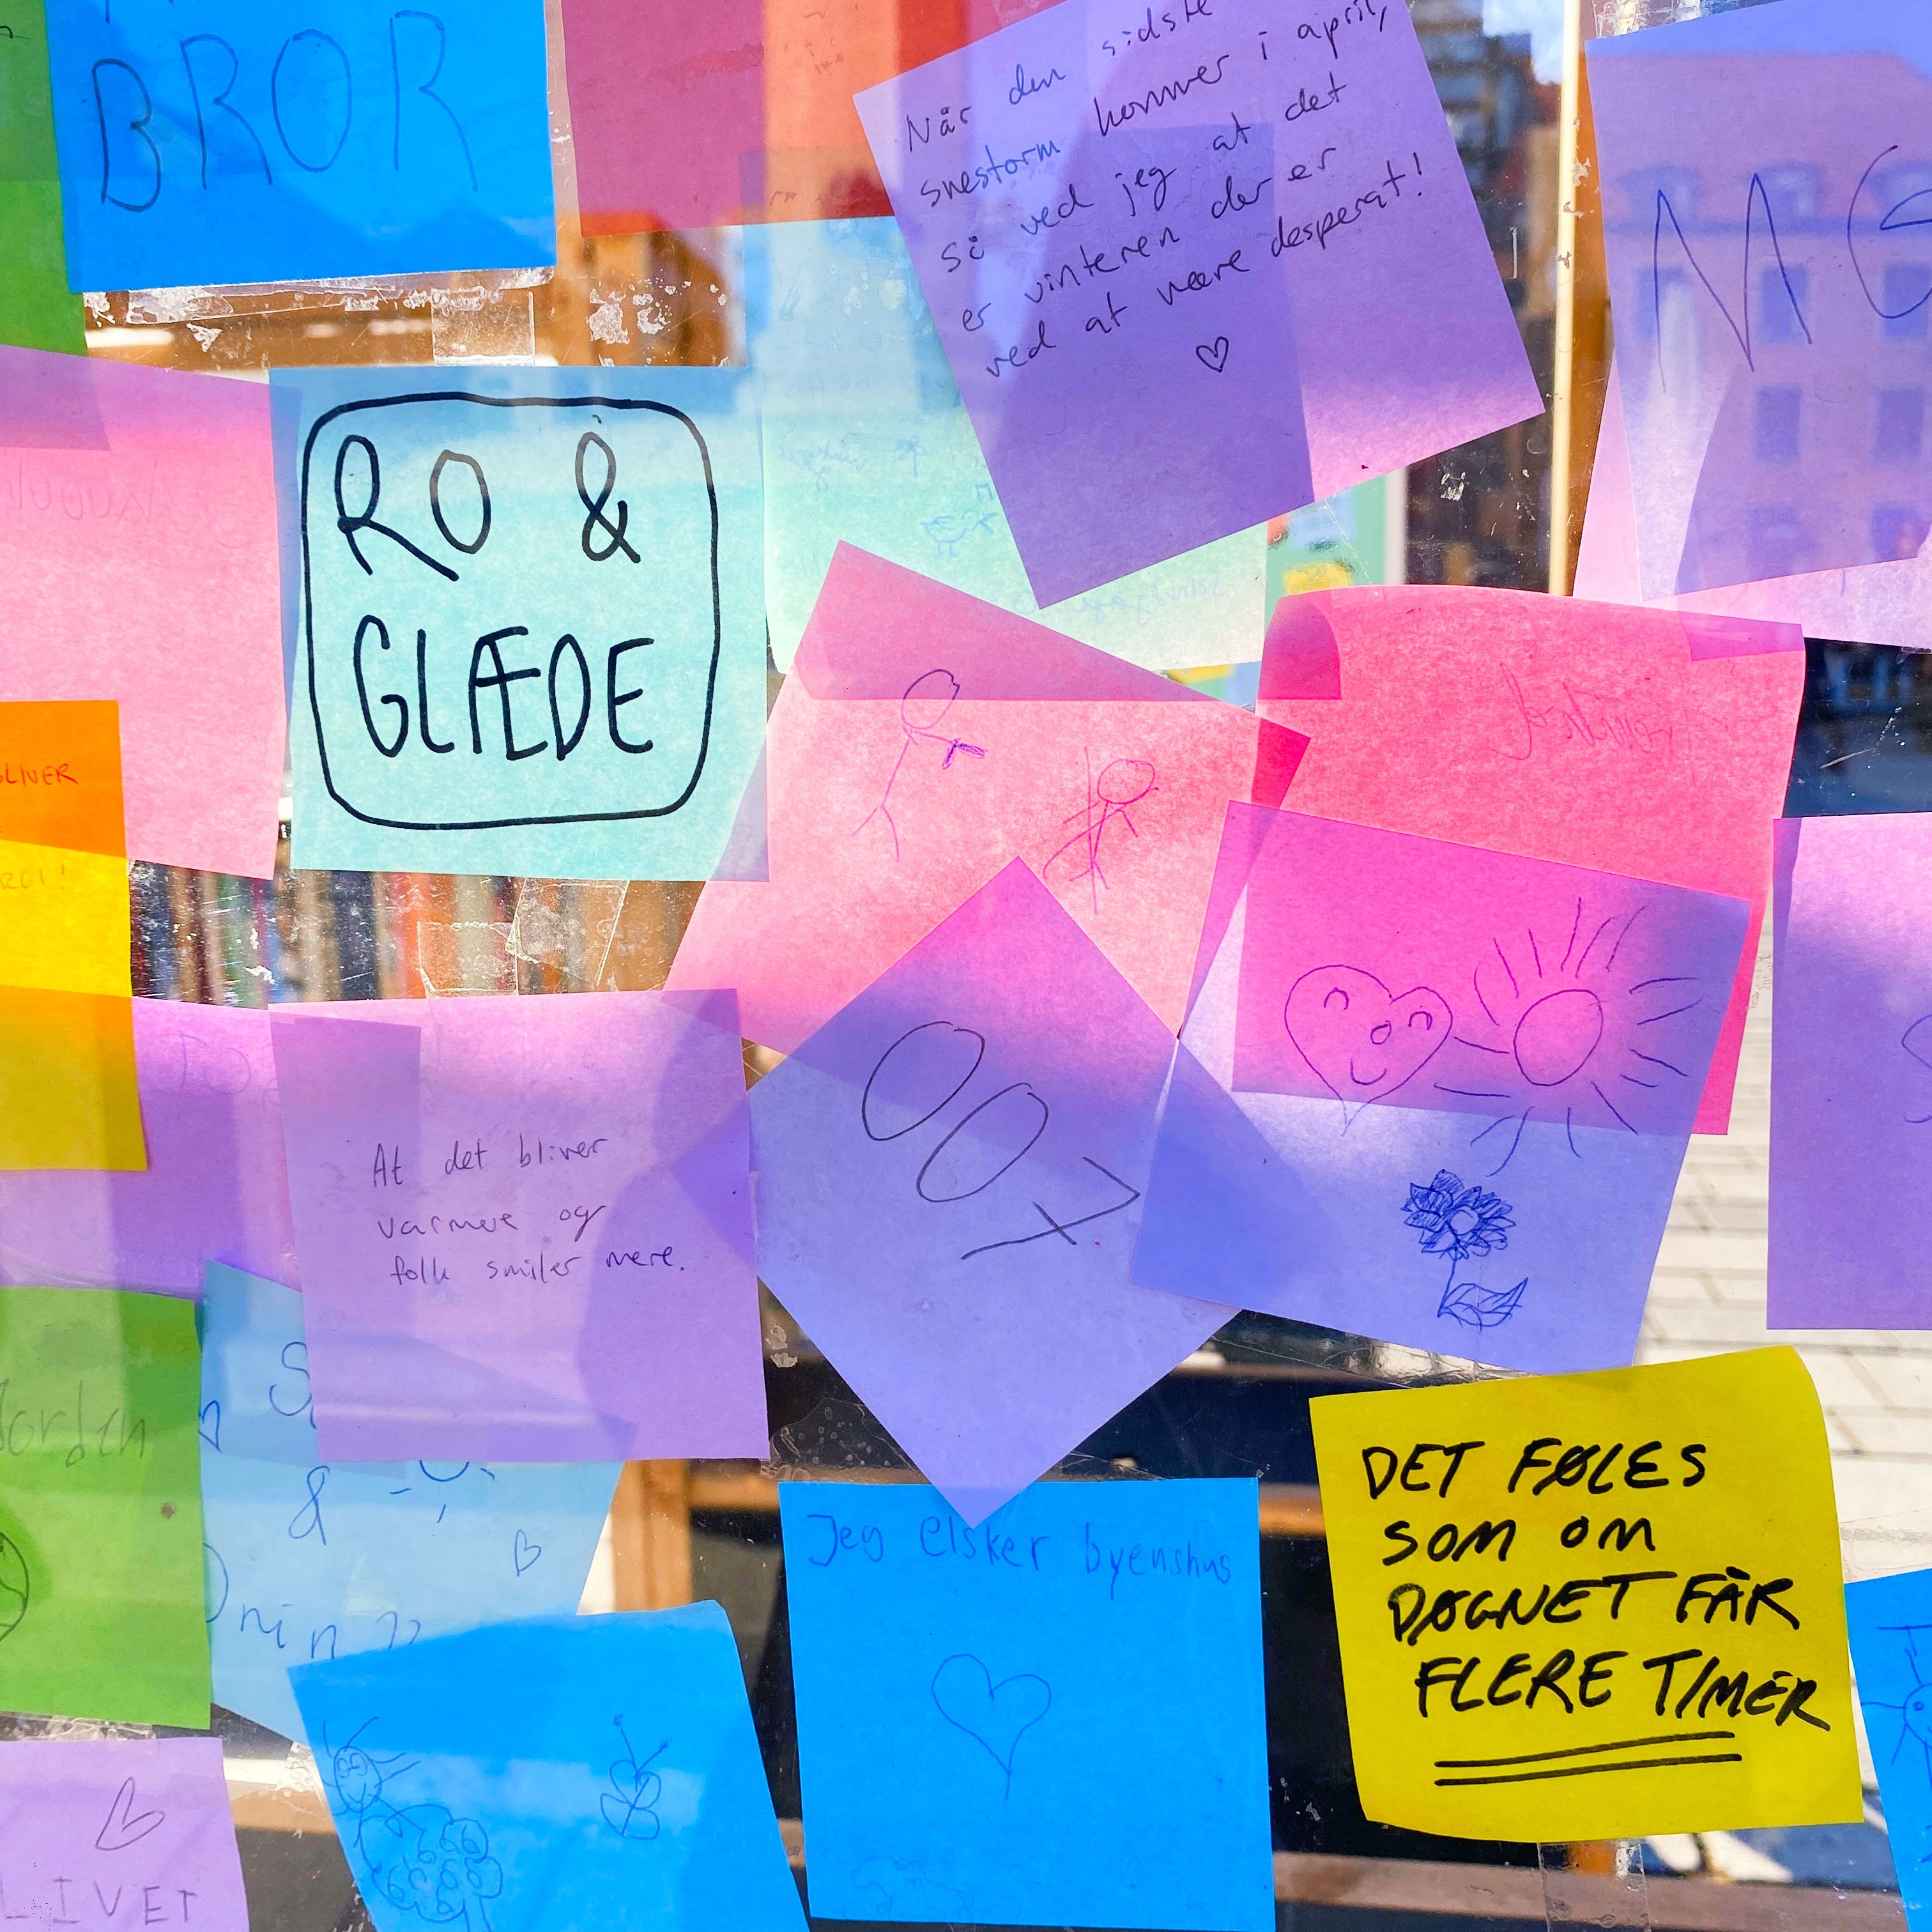 BROR
Når den sidste
snestorm kommer i april,
så ved jeg at det
er vinteren der er
ved at være desperat!
RO &
GLÆDE
BLIVER
At det bliver
varmere og
folk smiler mere.
007
Jorden
&
Jeg elsker byenshus
DET FØLES
SOM OM
DØGNET FÅR
FLERE TIMER
LIVET